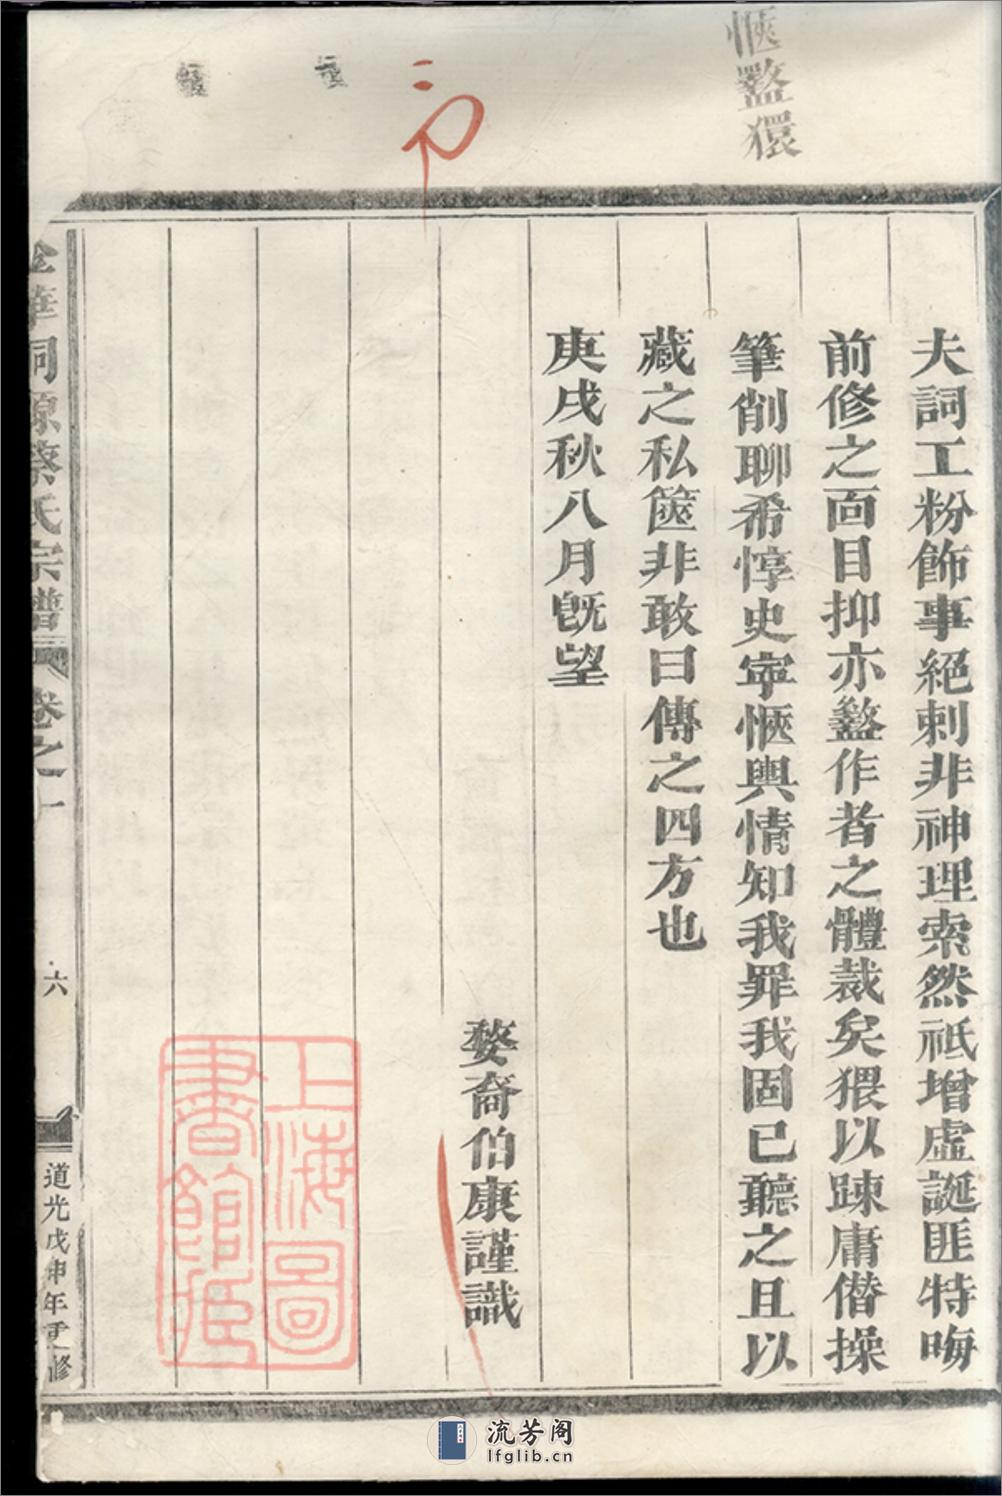 愜盭猥
夫詞工粉飾事絕剌非神理索然祗增虛誕匪特晦
前修之面目抑亦盭作者之體裁矣猥以踈庸僭操
筆削聊希惇史寕愜輿情知我罪我固已聽之且以
藏之私篋非敢曰傳之四方也
庚戌秋八月旣望
婺裔伯康謹識
上海圖
書館藏
華洞源蔡氏宗譜
卷之十
六
道光戊申年重修
流芳阁
lfglib.cn